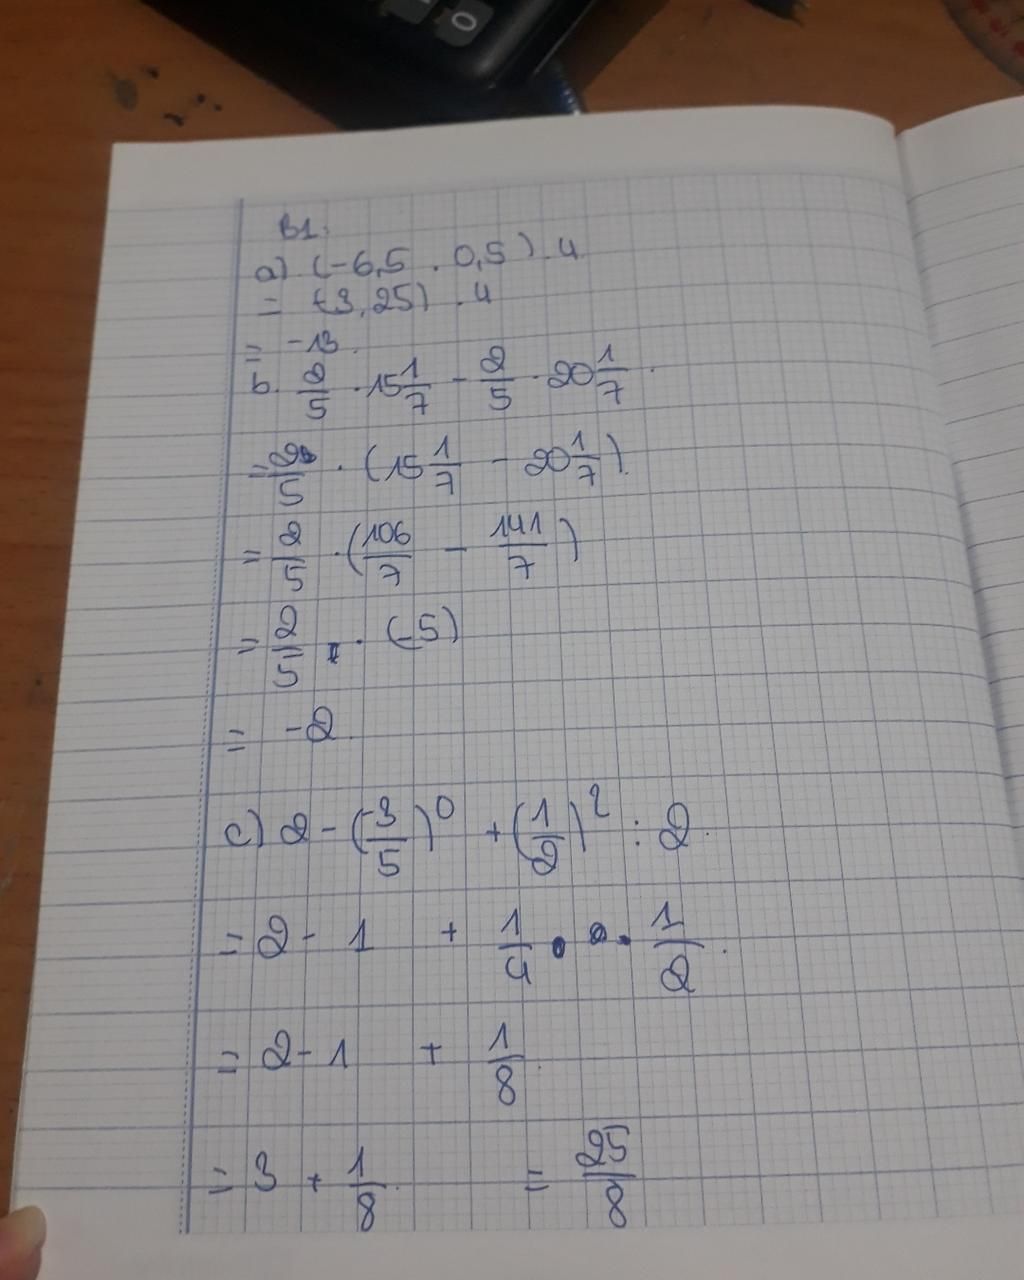 0
B1:
a) (-6,5 . 0,5) . 4
= (-3,25) . 4
= -13.
b. 2/5 . 15 1/7 - 2/5 . 20 1/7.
= 2/5 . (15 1/7 - 20 1/7).
= 2/5 . (106/7 - 141/7)
= 2/5 . (-5)
= -2.
c) 2 - (-3/5)^0 + (1/2)^2 : 2.
= 2 - 1 + 1/4 . 1/2.
= 2 - 1 + 1/8.
= 3 + 1/8. = 25/8